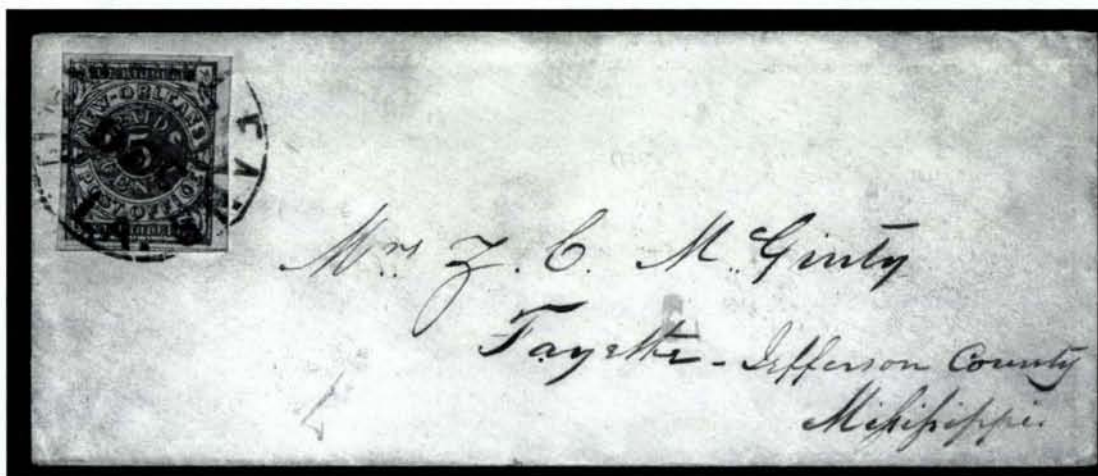 NEW-ORLEANS
5
CENTS
POST OFFICE
Mrs Z. C. McGinty
Fayette - Jefferson County
Mississippi.